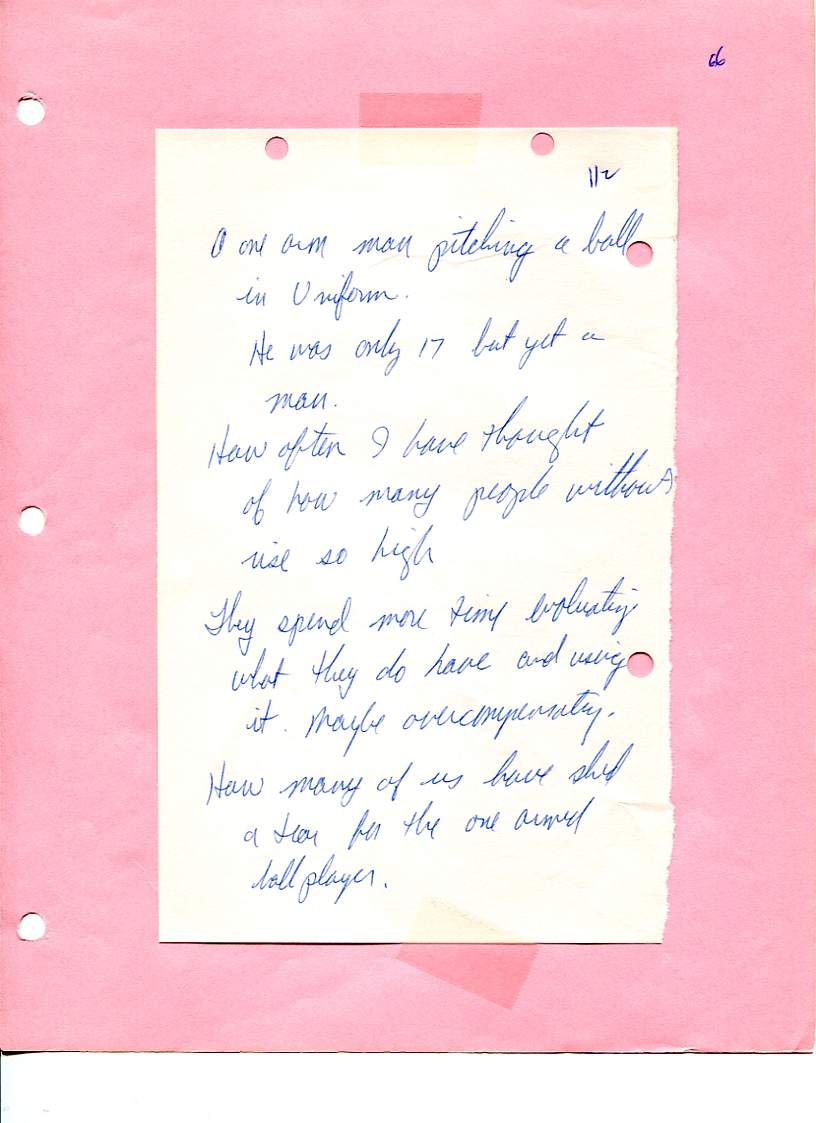 66
112
A one arm man pitching a ball
in Uniform.
He was only 17 but yet a
man.
How often I have thought
of how many people without
rise so high
They spend more time evaluating
what they do have and using
it. Maybe overcompensating.
How many of us have shed
a tear for the one armed
ballplayer.